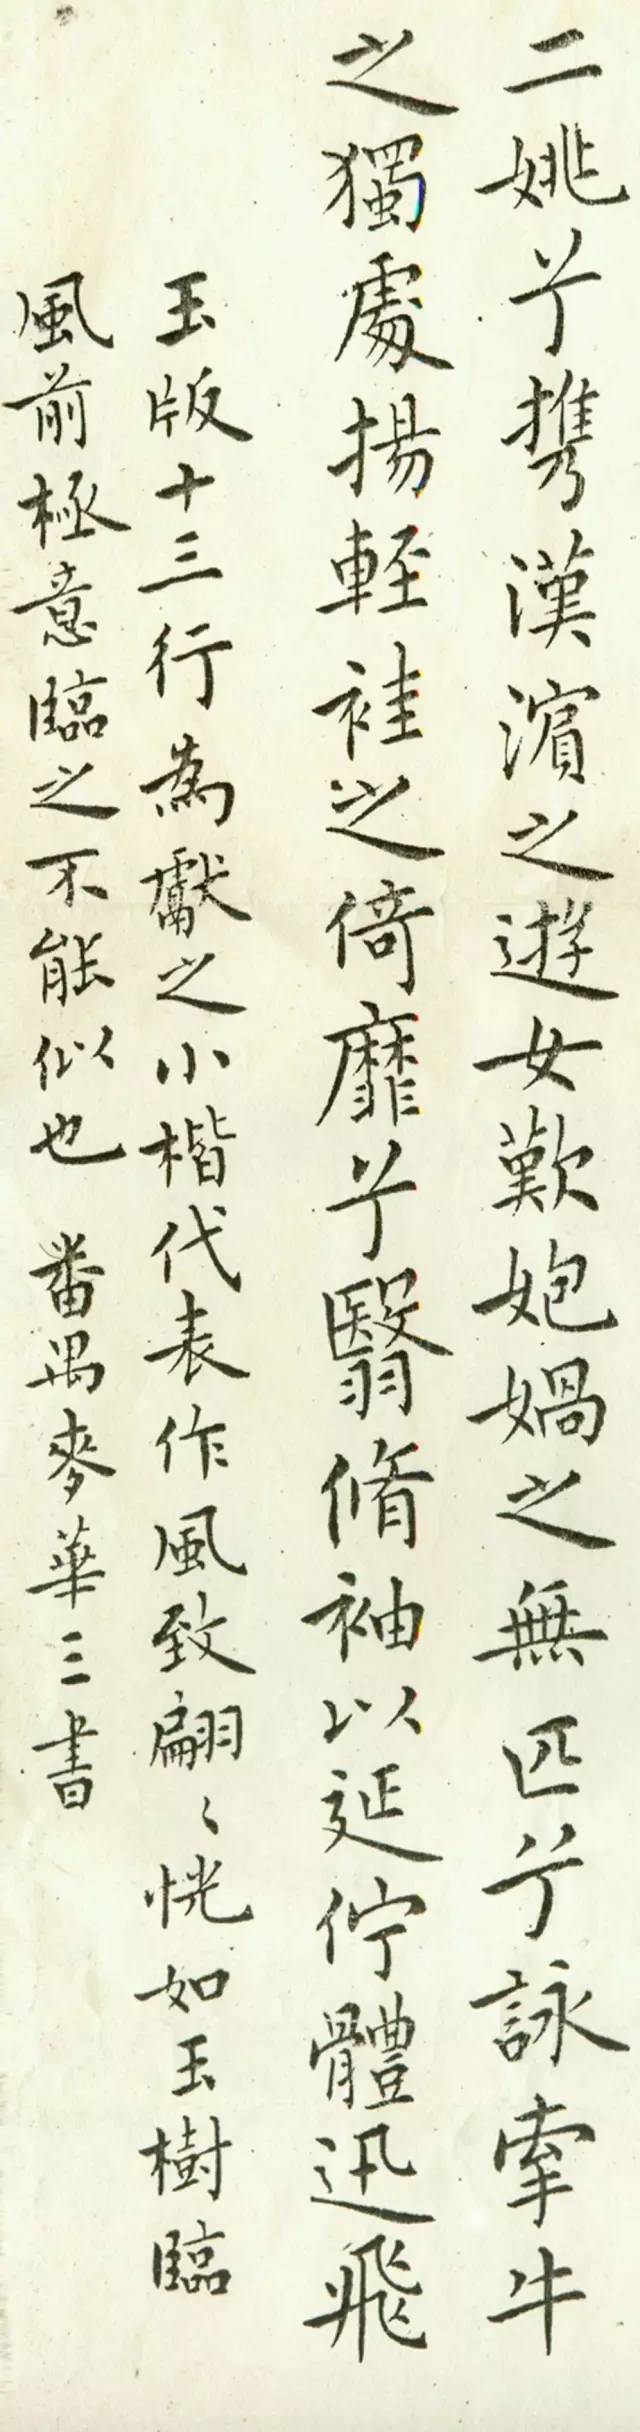 二姚兮攜漢濵之遊女歎匏媧之無匹兮詠牽牛
之獨處揚輕袿之倚靡兮翳脩袖以延佇體迅飛
玉版十三行為獻之小楷代表作風致翩〻恍如玉樹臨
風前極意臨之不能似也 番禺麥華三書